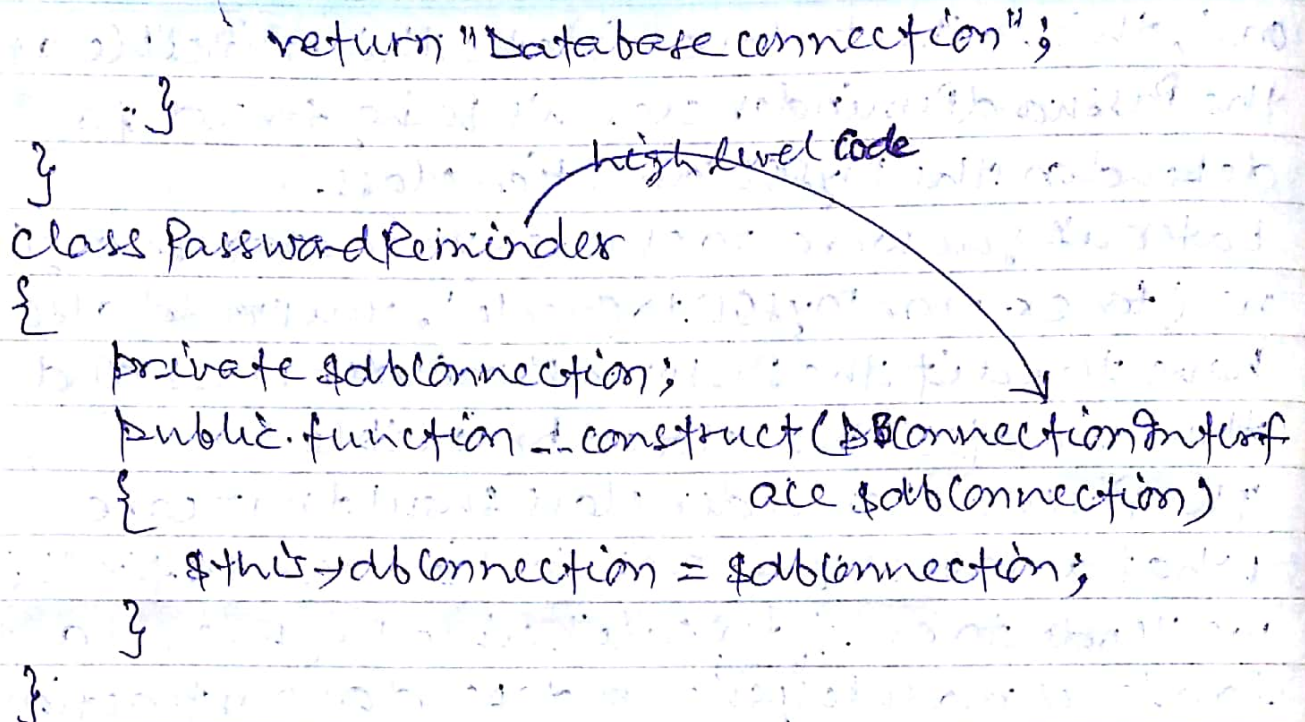 return "Database connection";
}
}
high level code
class PasswordReminder
{
private $dbConnection;
public function __construct(DBConnectionInterf
{ ace $dbConnection)
$this→dbConnection = $dbConnection;
}
}